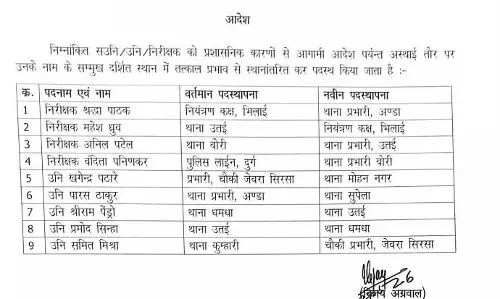 आदेश
निम्नांकित सउनि/उनि/निरीक्षक को प्रशासनिक कारणों से आगामी आदेश पर्यन्त अस्थाई तौर पर
उनके नाम के सम्मुख दर्शित स्थान में तत्काल प्रभाव से स्थानांतरित कर पदस्थ किया जाता है :–
क. पदनाम एवं नाम वर्तमान पदस्थापना नवीन पदस्थापना
1 निरीक्षक श्रद्धा पाठक नियंत्रण कक्ष, भिलाई थाना प्रभारी, अण्डा
2 निरीक्षक महेश ध्रुव थाना उतई नियंत्रण कक्ष, भिलाई
3 निरीक्षक अनिल पटेल थाना बोरी थाना प्रभारी, उतई
4 निरीक्षक वंदिता पनिणकर पुलिस लाईन, दुर्ग थाना प्रभारी बोरी
5 उनि खगेन्द्र पठारे प्रभारी, चौकी जेवरा सिरसा थाना मोहन नगर
6 उनि पारस ठाकुर थाना प्रभारी, अण्डा थाना सुपेला
7 उनि श्रीराम पेंड्रो थाना धमधा थाना उतई
8 उनि प्रमोद सिन्हा थाना उतई थाना धमधा
9 उनि समित मिश्रा थाना कुम्हारी चौकी प्रभारी, जेवरा सिरसा
अग्रवाल)